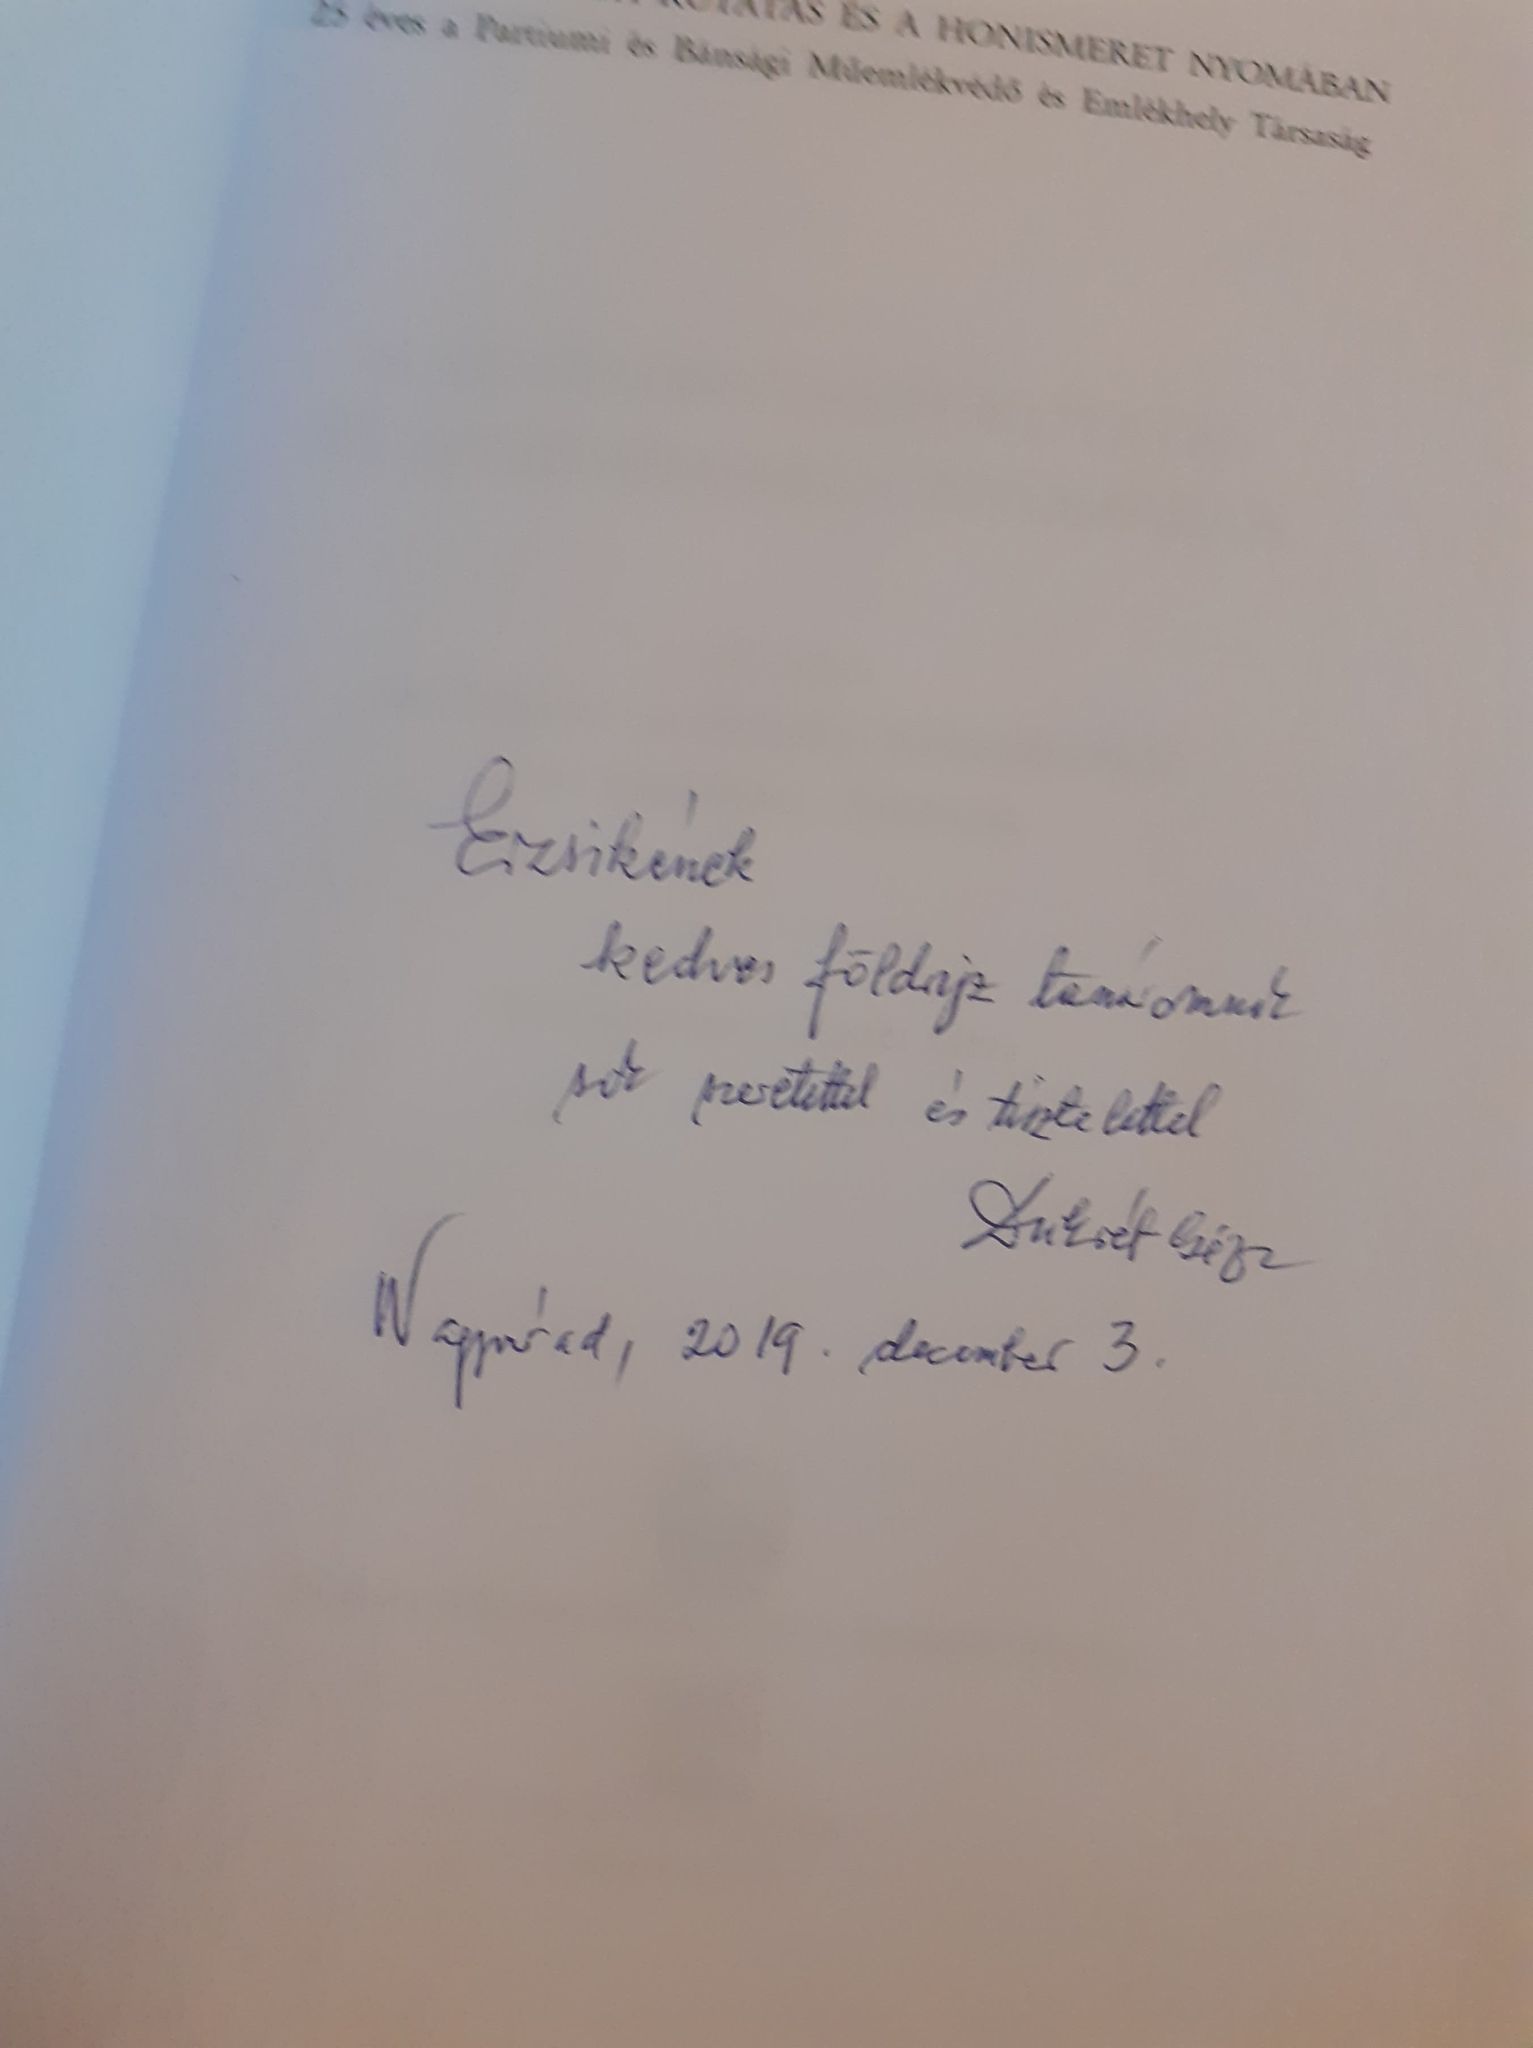 KUTATÁS ÉS A HONISMERET NYOMÁBAN
25 éves a Partiumi és Bánsági Műemlékvédő és Emlékhely Társaság
Erzsikének
kedves földrajz tanáromnak
sok szeretettel és tisztelettel
Dukrét Géza
Nagyvárad, 2019. december 3.